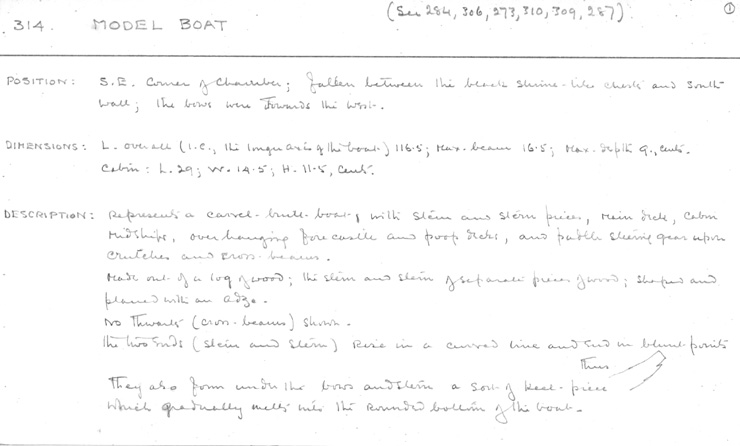 (See 284, 306, 273, 310, 309, 287) ①
314. MODEL BOAT
POSITION: S.E. Corner of Chamber; fallen between the black shrine-like chests and south
wall; the bows were towards the West.
DIMENSIONS: L. overall (i.e., the longer axis of the boat) 116.5; Max. beam 16.5; Max. depth 9., cents.
Cabin: L. 29; W. 14.5; H. 11.5, cents.
DESCRIPTION: Represents a carvel-built-boat, with stem and stern pieces, main deck, cabin
midships, overhanging forecastle and poop decks, and paddle steering gear upon
crutches and cross-beams.
Made out of a log of wood; the stem and stern of separate pieces of wood; shaped and
planed with an adze.
No thwarts (cross-beams) shown.
The two ends (stem and stern) rise in a curved line and end in blunt points
thus
They also form under the bows and stern a sort of keel-piece
which gradually melts into the rounded bottom of the boat.